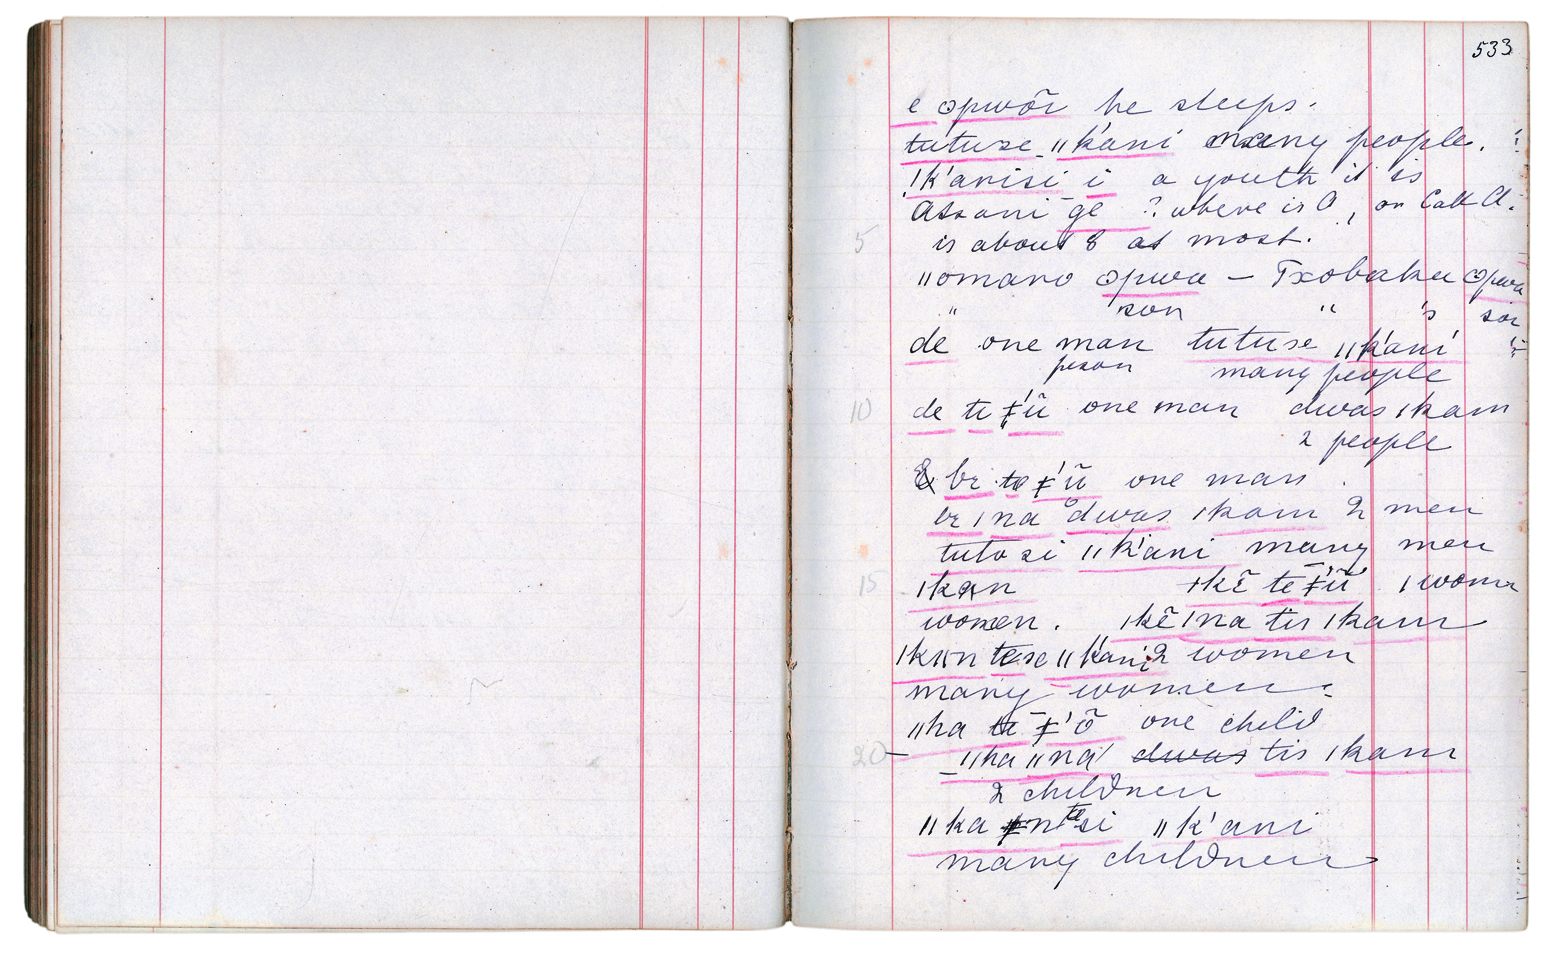 533
e ʘpwõĩ he sleeps.
tutuse ǁk'ani many people.
ǃk'anisi i a youth it is
Atsani ge ? where is A, or Call A.
5 is about 8 at most.
ǁomano ʘpwa — Txobaku ʘpwa
" son " 's son
de one man tutuse ǁk'ani
person many people
10 de te ǂ'ũ one man dwas ǀkam
2 people
be te ǂ'ũ one man.
be ǀna dwas ǀkam 2 men
tuto si ǁk'ani many men
15 ǀkan ǀkẽ te ǂ'ũ 1 woma
women. ǀkẽ ǀna tis ǀkam
ǀkan te se ǁkani 2 women
many women
ǁha te ǂ'õ one child
20 ǁha ǁna dwas tis ǀkam
2 children
ǁka n te si ǁk'ani
many children